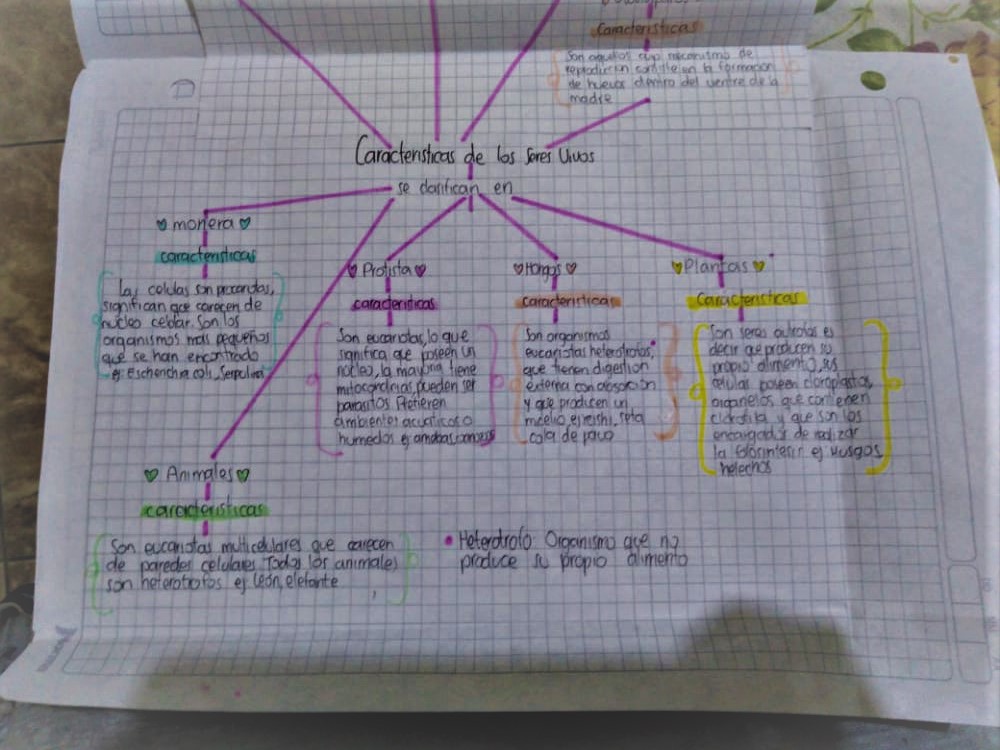 Caracteristicas
Son aquellos cuyo mecanismo de
reproduccion consiste en la formacion
de huevos dentro del vientre de la
madre
Caracteristicas de los Seres Vivos
se clasifican en
monera
caracteristicas
Las celulas son procariotas,
significan que carecen de
nucleo celular. Son los
organismos mas pequeños
que se han encontrado
ej: Escherichia coli,
Protista
caracteristicas
Son eucariotas, lo que
significa que poseen un
nucleo, la mayoria tiene
mitocondrias, pueden ser
parasitos. Prefieren
ambientes acuaticos o
humedos ej amebas,
Hongos
caracteristicas
Son organismos
eucariotas heterotrofos,
que tienen digestion
externa con absorcion
y que producen un
micelio ej reishi, seta
cola de pavo
Plantas
Caracteristicas
Son seres autotrofos es
decir que producen su
propio alimento, sus
celulas poseen cloroplastos,
organelos que contienen
clorofila y que son los
encargados de realizar
la fotosintesis ej Musgos
helechos
Animales
caracteristicas
Son eucariotas multicelulares que carecen
de paredes celulares Todos los animales
son heterotrofos ej León, elefante
Heterotrofo Organismo que no
produce su propio alimento